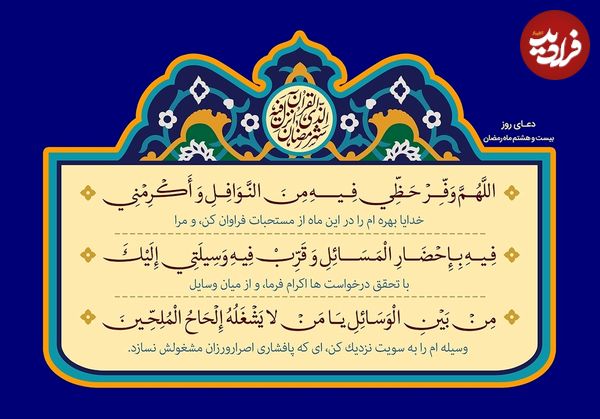 اخبار
فرادید
دعای روز
بیست و هشتم ماه رمضان
شهر رمضان الذی انزل فیه القرآن
اللَّهُمَّ وَفِّرْ حَظِّي فِيهِ مِنَ النَّوَافِلِ وَ أَكْرِمْنِي
خدایا بهره ام را در این ماه از مستحبات فراوان کن، و مرا
فِيهِ بِإِحْضَارِ الْمَسَائِلِ وَ قَرِّبْ فِيهِ وَسِيلَتِي إِلَيْكَ
با تحقق درخواست ها اکرام فرما، و از میان وسایل
مِنْ بَيْنِ الْوَسَائِلِ يَا مَنْ لا يَشْغَلُهُ إِلْحَاحُ الْمُلِحِّينَ
وسیله ام را به سویت نزدیک کن، ای که پافشاری اصرارورزان مشغولش نسازد.